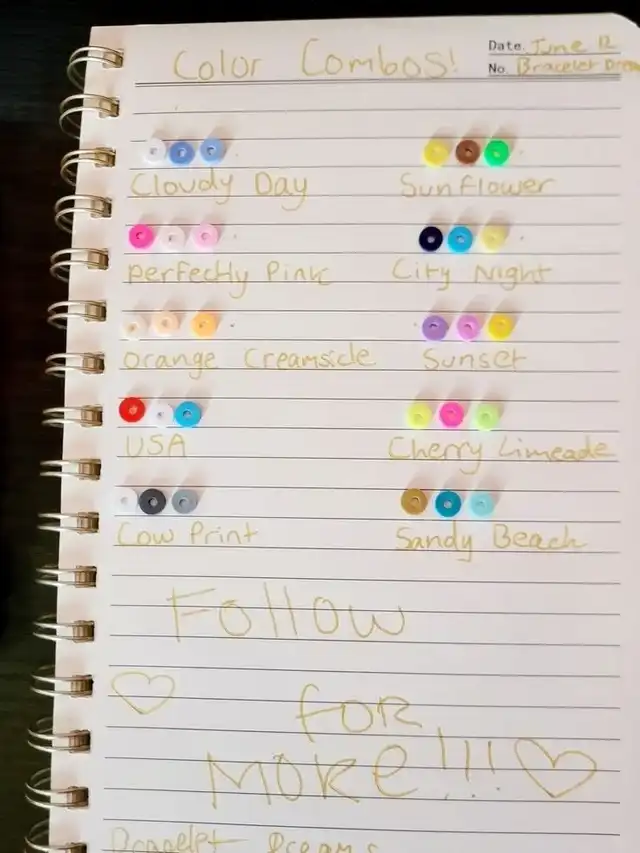 Color Combos!
Date. June 12
No. Bracelet Dream
Cloudy Day
Sunflower
Perfectly Pink
City Night
Orange Creamsicle
Sunset
USA
Cherry Limeade
Cow Print
Sandy Beach
Follow
for
More!!!
Bracelet Dreams